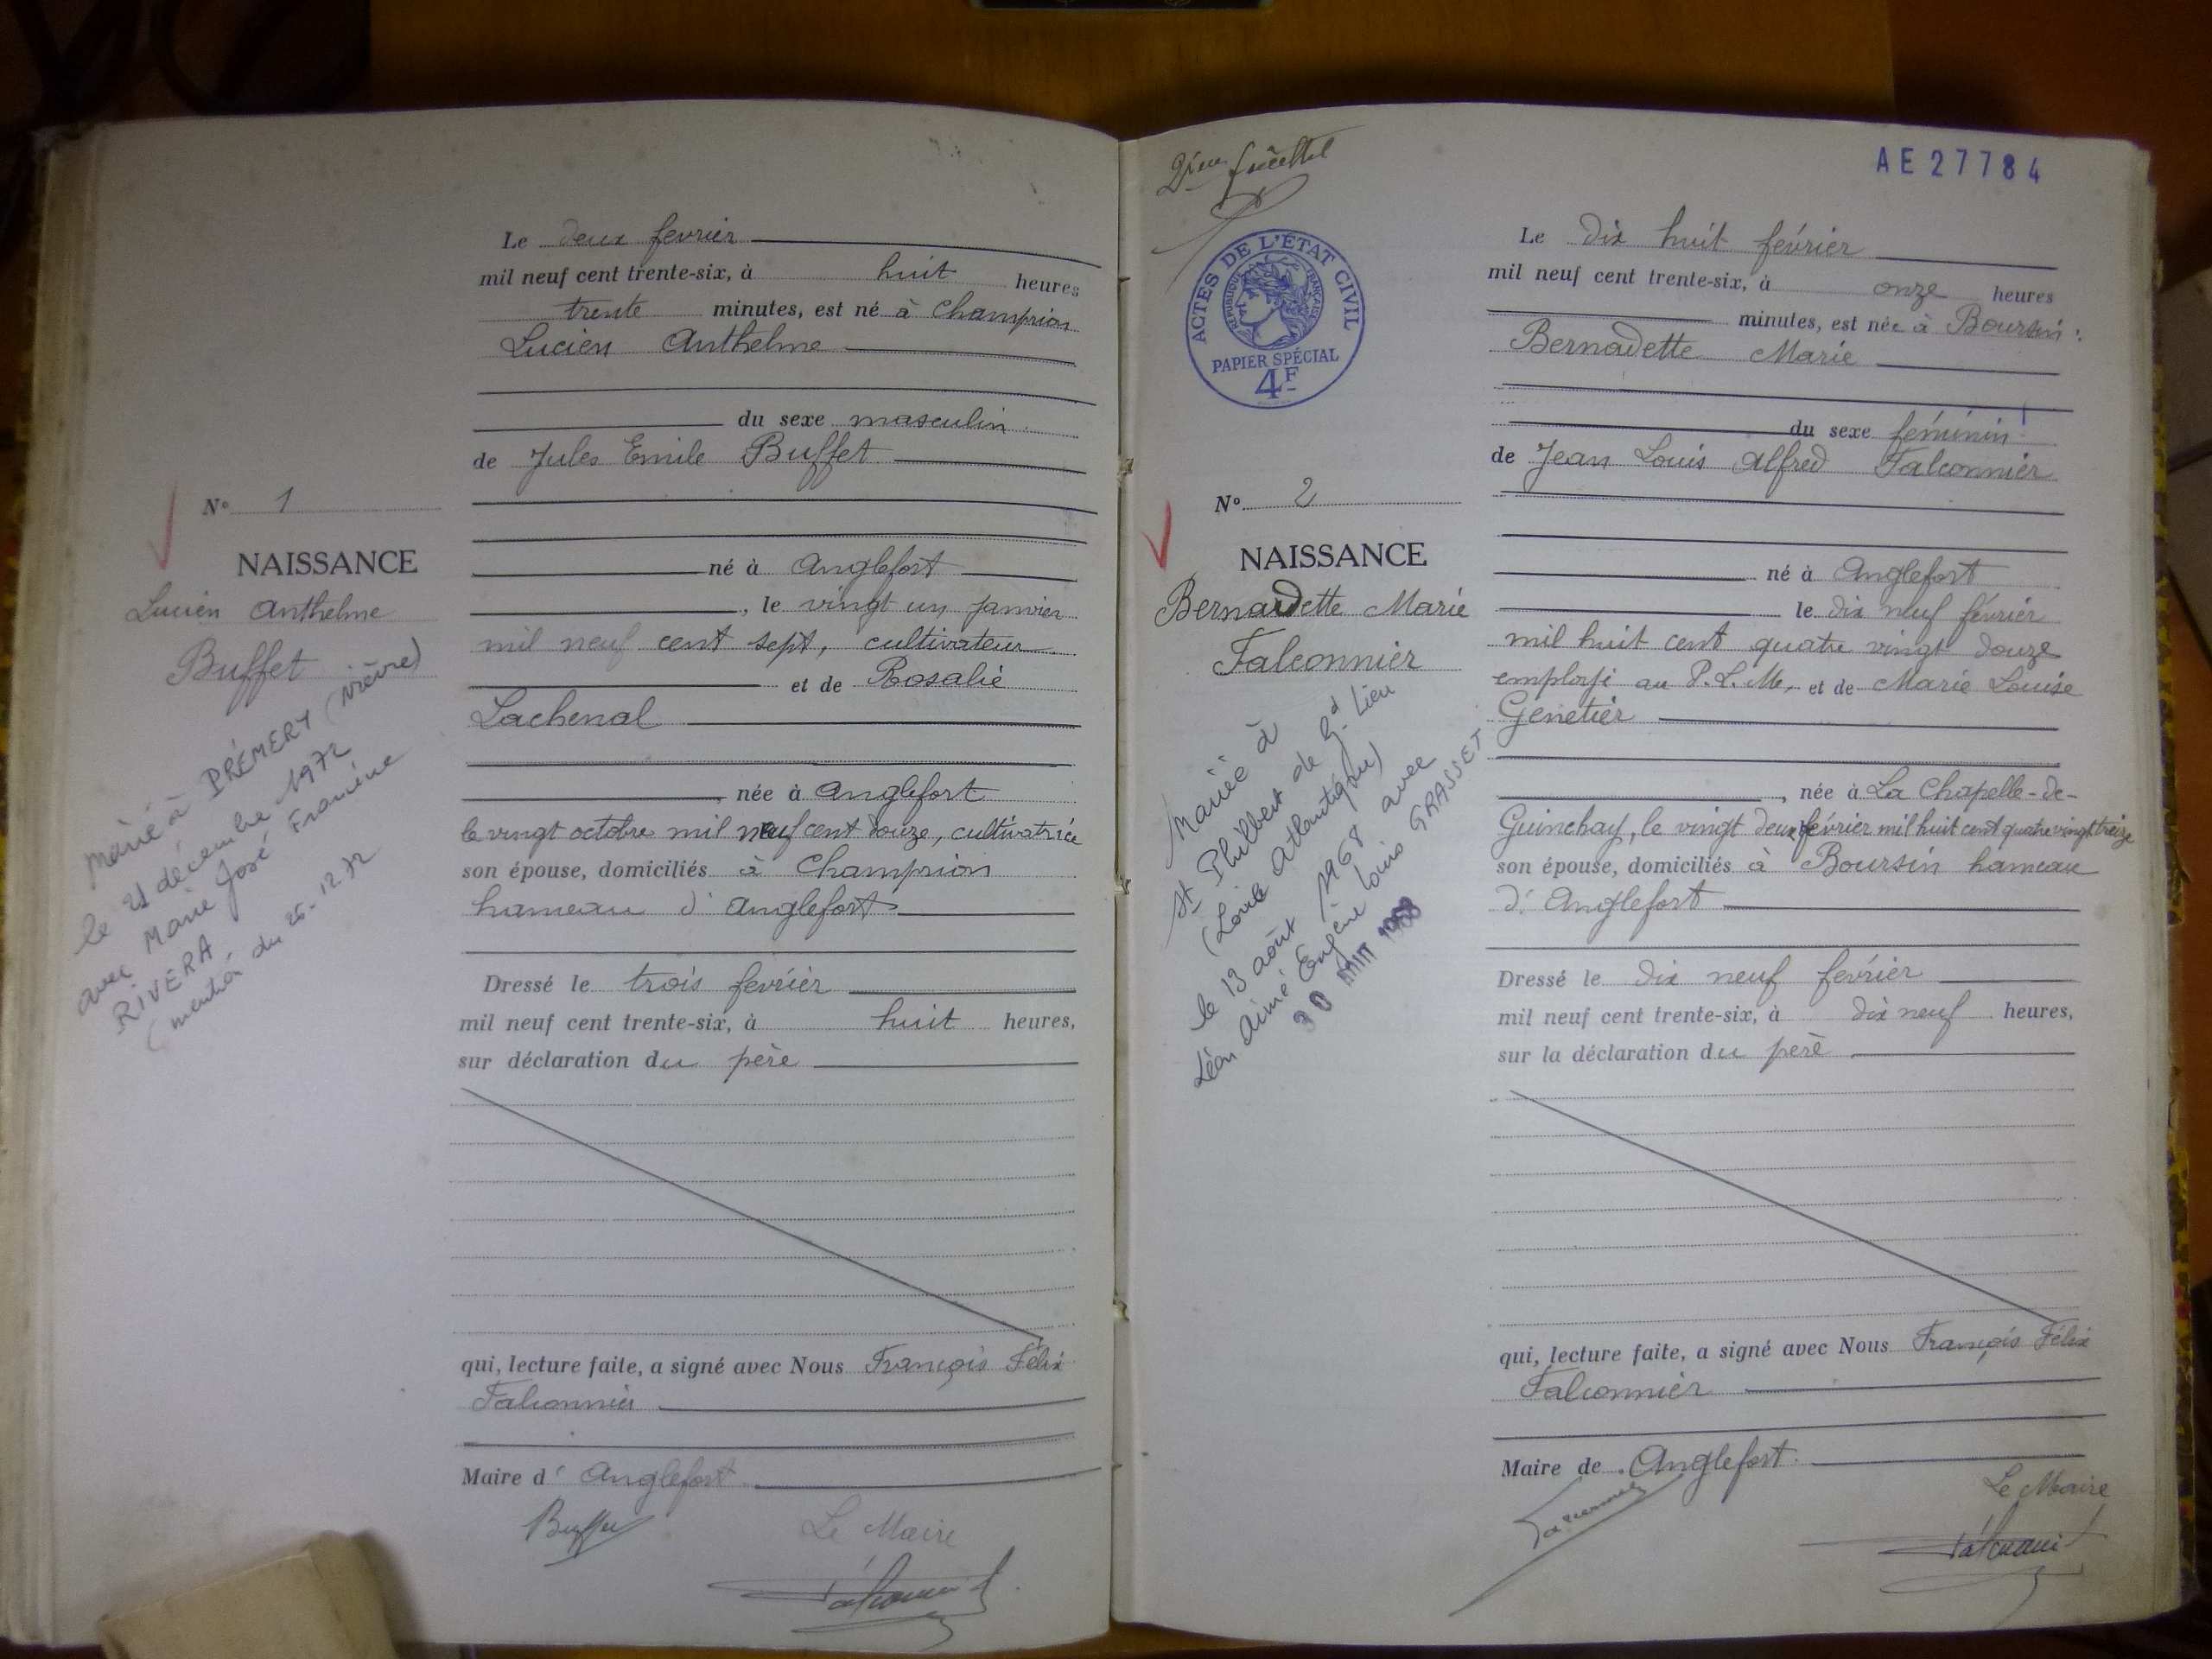 Le deux fevrier
mil neuf cent trente-six, à huit heures
trente minutes, est né à Champrion
Lucien Anthelme
du sexe masculin
de Jules Emile Buffet
N° 1
NAISSANCE
Lucien Anthelme
Buffet
né à Anglefort
, le vingt un Janvier
mil neuf cent sept, cultivateur
et de Rosalie
Lachenal
née à Anglefort
le vingt octobre mil neuf cent douze, cultivatrice
son épouse, domiciliés à Champrion
hameau d'Anglefort
Marié à PRÉMERY (Nièvre)
le 21 décembre 1972
avec Marie José Francine
RIVERA
(mention du 26-12.72
Dressé le trois fevrier
mil neuf cent trente-six, à huit heures,
sur déclaration du père
qui, lecture faite, a signé avec Nous François Félix
Falconnier
Maire d'Anglefort
Le Maire
2ième
AE27784
ACTES DE L'ÉTAT CIVIL
RÉPUBLIQUE FRANÇAISE
PAPIER SPÉCIAL
4F
Le dix huit février
mil neuf cent trente-six, à onze heures
minutes, est née à Boursin
Bernadette Marie
du sexe féminin
de Jean Louis Alfred Falconnier
N° 2
NAISSANCE
Bernadette Marie
Falconnier
né à Anglefort
le dix neuf février
mil huit cent quatre vingt douze
employé au P.L.M. et de Marie Louise
Genetier
, née à La Chapelle-de-
Guinchay, le vingt deux février mil huit cent quatre vingt treize
son épouse, domiciliés à Boursin hameau
d'Anglefort
Mariée à
St Philbert de Gd Lieu
(Loire Atlantique)
le 13 août 1968 avec
Léon Aimé Eugène Louis GRASSET
Dressé le dix neuf fevrier
mil neuf cent trente-six, à dix neuf heures,
sur la déclaration du père
qui, lecture faite, a signé avec Nous François Félix
Falconnier
Maire de Anglefort
Le Maire